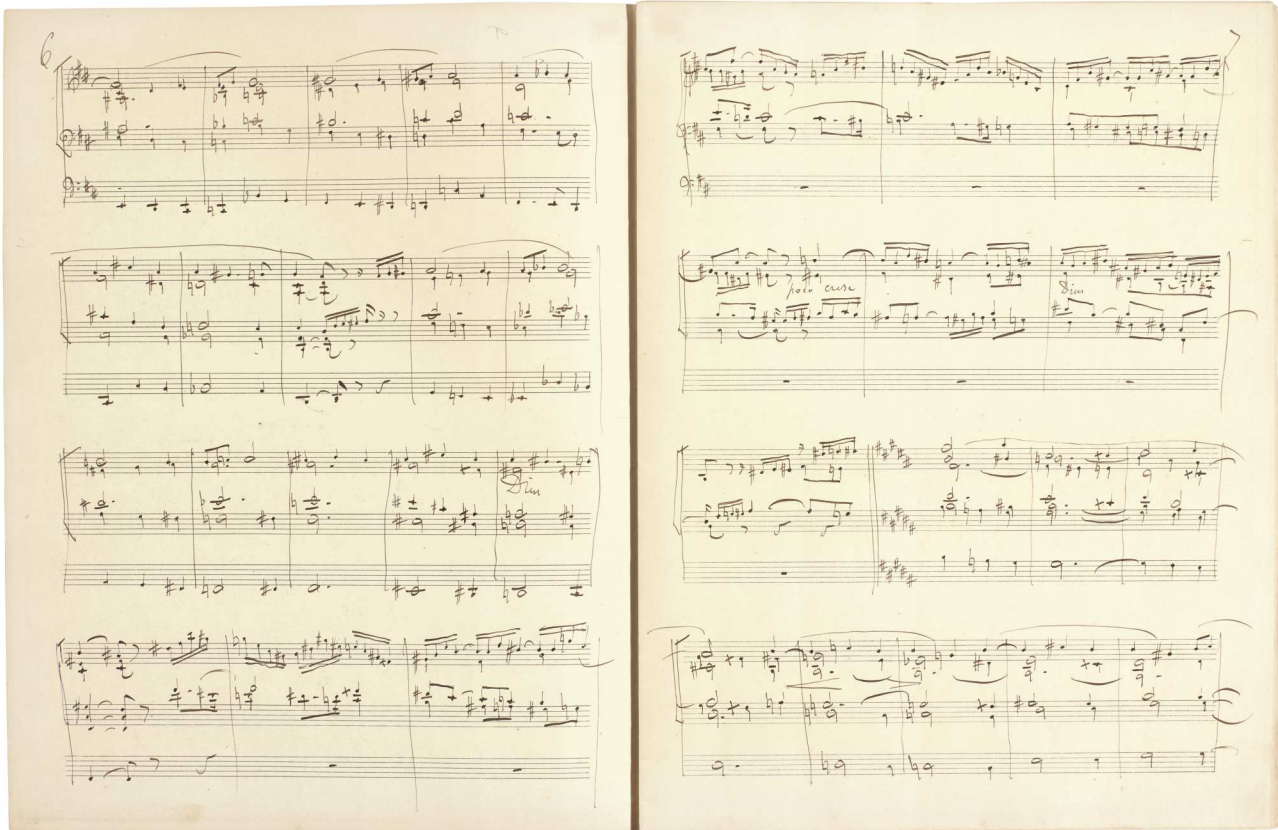 6
Dim
7
poco cresc
Dim